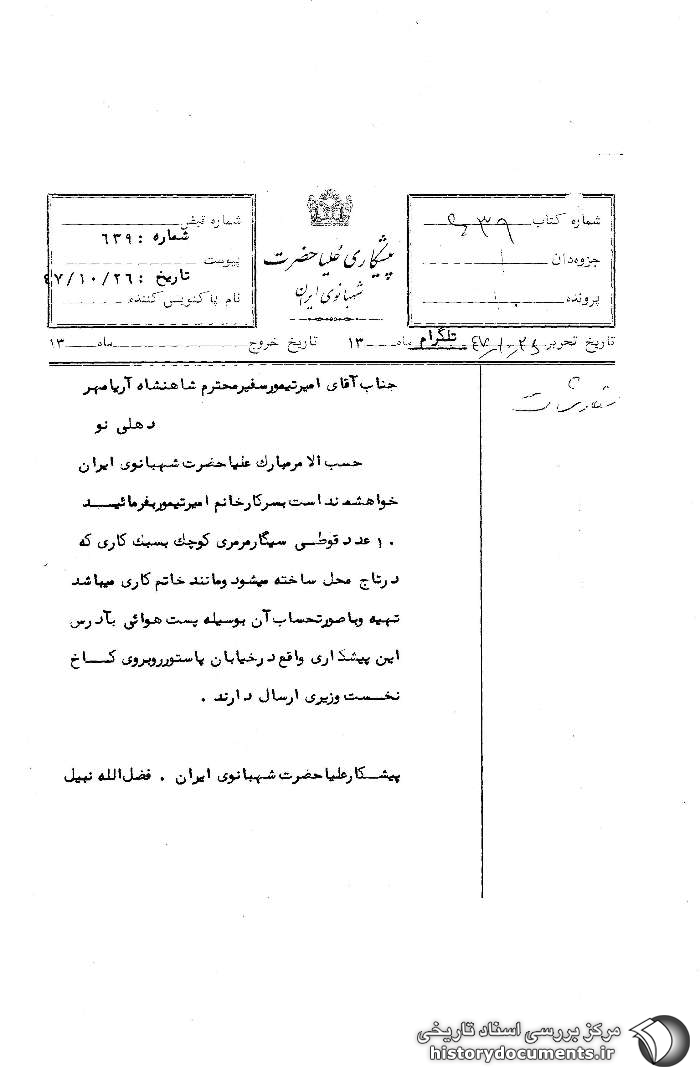 شماره کتاب ۶۳۹
جزوه‌دان
پرونده
پیشکاری علیاحضرت
شهبانوی ایران
شماره نبض
شماره : ۶۳۹
پیوست
تاریخ : ۴۷/۱۰/۲۶
نام پاکنویس کننده
تاریخ تحریر ماه ۱۳ تاریخ خروج ماه ۱۳
تلگرام
جناب آقای امیرتیمور سفیر محترم شاهنشاه آریامهر
دهلی نو
حسب الامر مبارک علیاحضرت شهبانوی ایران
خواهشمند است بسرکار خانم امیرتیمور بفرمائید
۱۰ عدد قوطی سیگار مرمری کوچک بسبک کاری که
در تاج محل ساخته میشود و مانند خاتم کاری میباشد
تهیه و با صورتحساب آن بوسیله پست هوائی بآدرس
این پیشکاری واقع در خیابان پاستور روبروی کاخ
نخست وزیری ارسال دارند .
پیشکار علیاحضرت شهبانوی ایران . فضل‌الله نبیل
مرکز بررسی اسناد تاریخی
historydocuments.ir